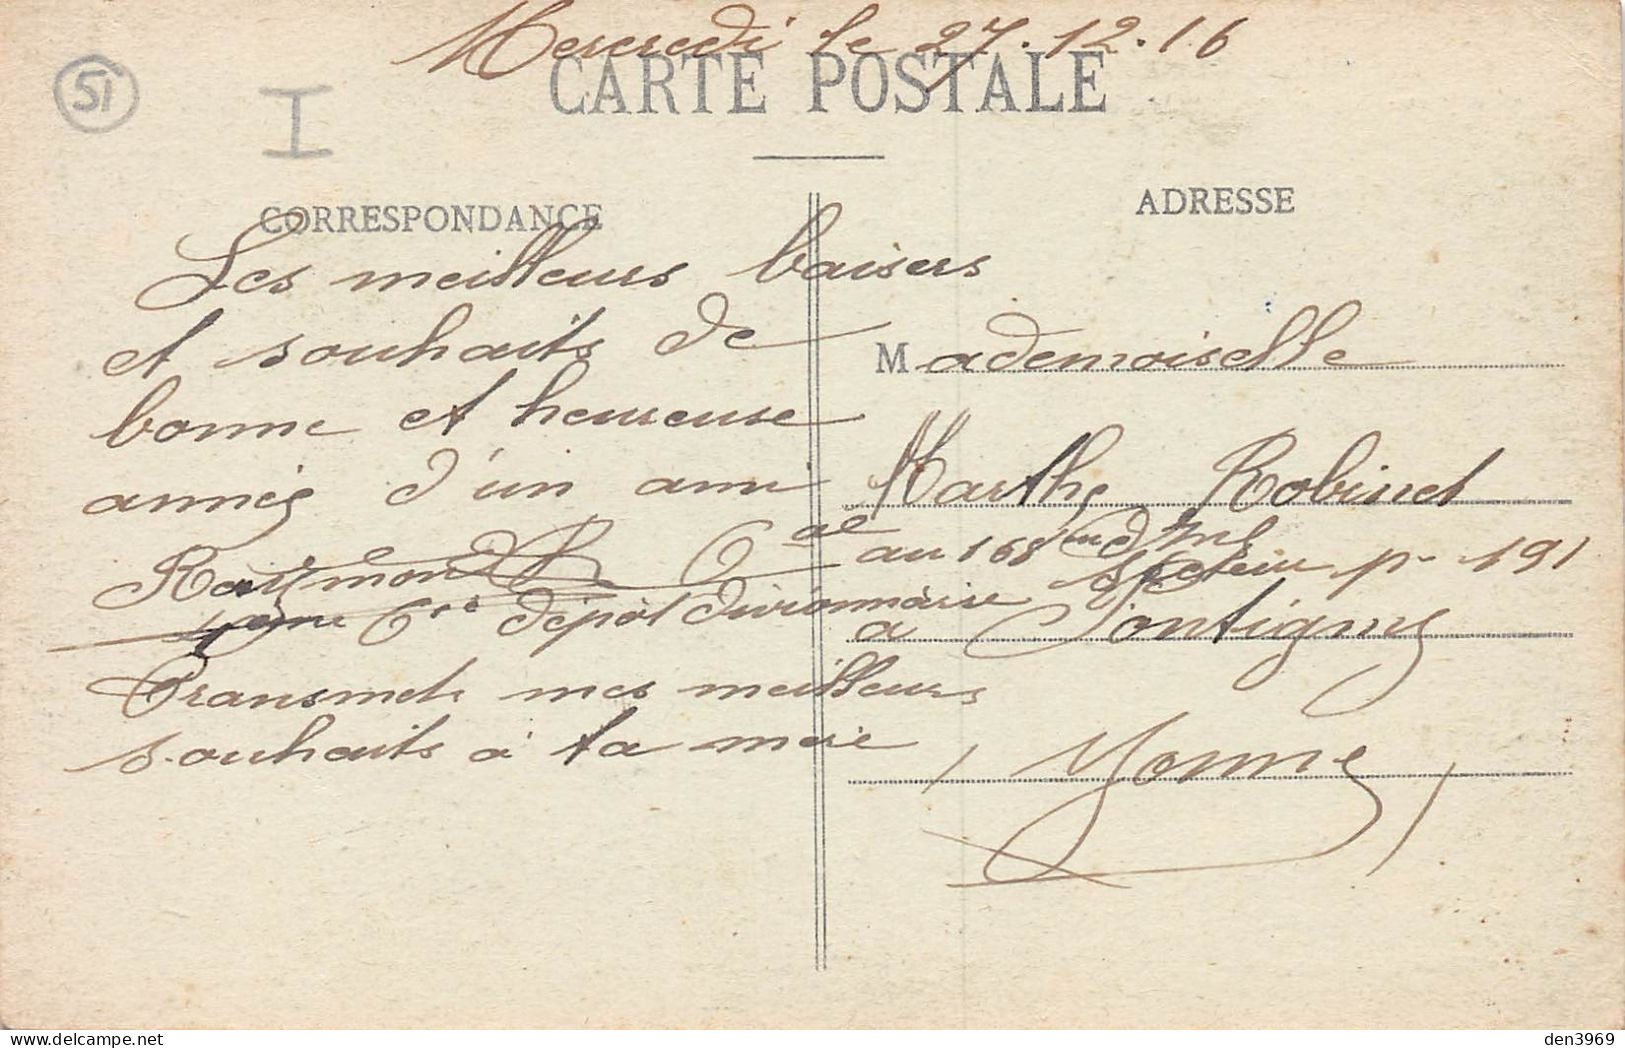 Mercredi le 27.12.16
CARTE POSTALE
51
I
CORRESPONDANCE
ADRESSE
Les meilleurs baisers
et souhaits de
bonne et heureuse
année d'un ami
Raymond R Cal au 168
Cie dépôt divisionnaire Secteur p. 191
Transmets mes meilleurs
souhaits à ta mère
Mademoiselle
Marthe Robinet
à Pontigny
Yonne
den3969